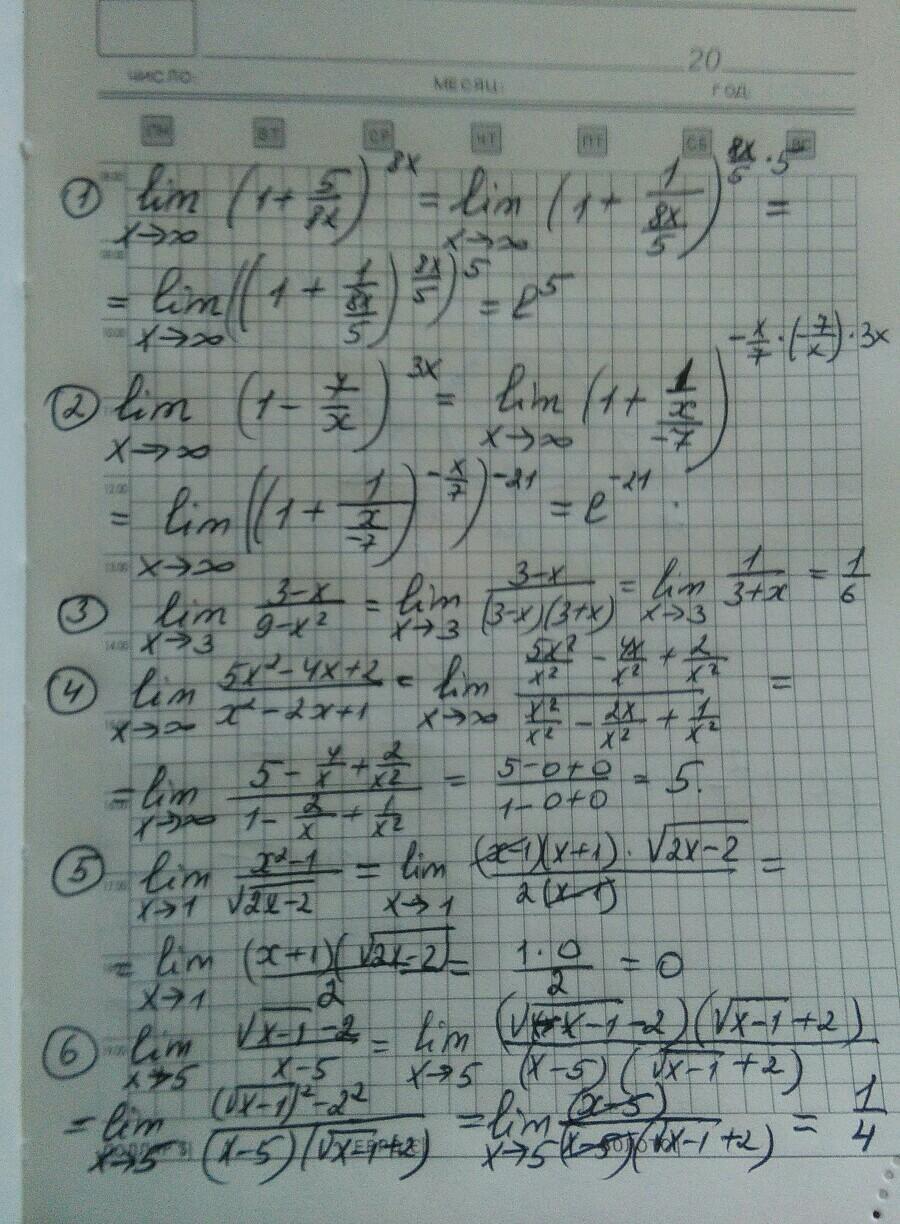 20
ЧИСЛО: МЕСЯЦ: ГОД:
ПН ВТ СР ЧТ ПТ СБ ВС
① lim_{x→∞} (1 + 5/8x)^{8x} = lim_{x→∞} (1 + 1/(8x/5))^{8x/5 · 5} =
= lim_{x→∞} ((1 + 1/(8x/5))^{8x/5})^5 = e^5
② lim_{x→∞} (1 - 7/x)^{3x} = lim_{x→∞} (1 + 1/(x/-7))^{-x/7 · (-7/x) · 3x}
= lim_{x→∞} ((1 + 1/(x/-7))^{-x/7})^{-21} = e^{-21}.
③ lim_{x→3} (3-x)/(9-x²) = lim_{x→3} (3-x)/((3-x)(3+x)) = lim_{x→3} 1/(3+x) = 1/6
④ lim_{x→∞} (5x²-4x+2)/(x²-2x+1) = lim_{x→∞} (5x²/x² - 4x/x² + 2/x²)/(x²/x² - 2x/x² + 1/x²) =
= lim_{x→∞} (5 - 4/x + 2/x²)/(1 - 2/x + 1/x²) = (5-0+0)/(1-0+0) = 5.
⑤ lim_{x→1} (x²-1)/√(2x-2) = lim_{x→1} ((x-1)(x+1)·√(2x-2))/(2(x-1)) =
= lim_{x→1} ((x+1)(√(2x-2)))/2 = (1·0)/2 = 0
⑥ lim_{x→5} (√(x-1)-2)/(x-5) = lim_{x→5} ((√(x-1)-2)(√(x-1)+2))/((x-5)(√(x-1)+2))
= lim_{x→5} ((√(x-1))²-2²)/((x-5)(√(x-1)+2)) = lim_{x→5} (x-5)/((x-5)(√(x-1)+2)) = 1/4